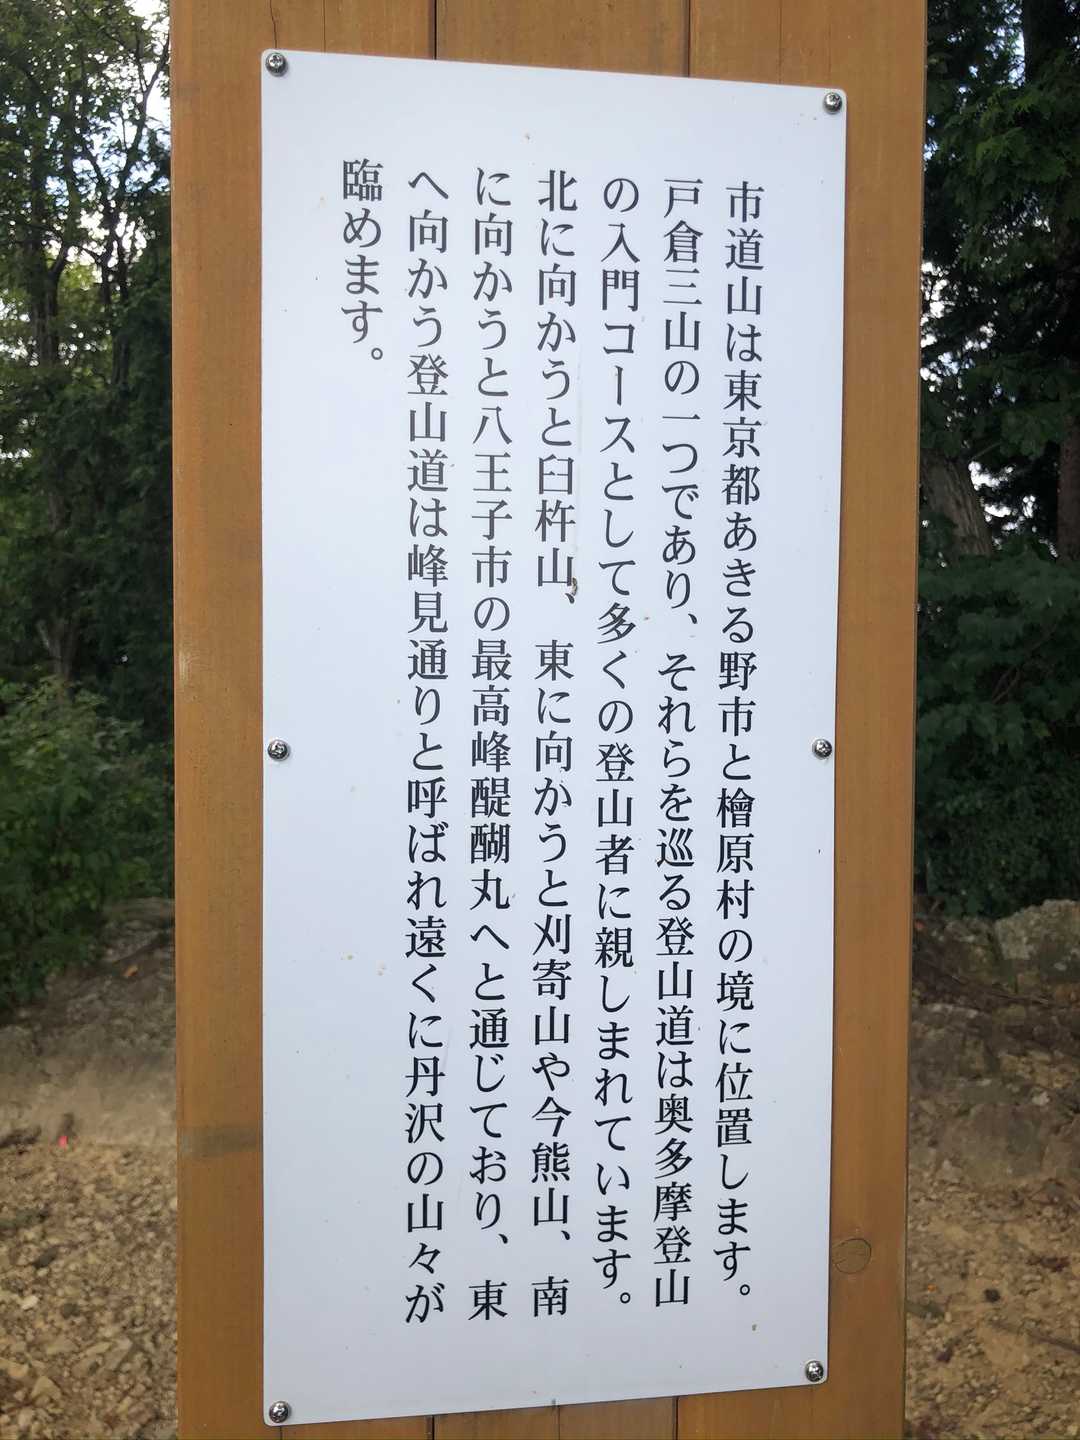 市道山は東京都あきる野市と檜原村の境に位置します。
戸倉三山の一つであり、それらを巡る登山道は奥多摩登山
の入門コースとして多くの登山者に親しまれています。
北に向かうと臼杵山、東に向かうと刈寄山や今熊山、南
に向かうと八王子市の最高峰醍醐丸へと通じており、東
へ向かう登山道は峰見通りと呼ばれ遠くに丹沢の山々が
臨めます。